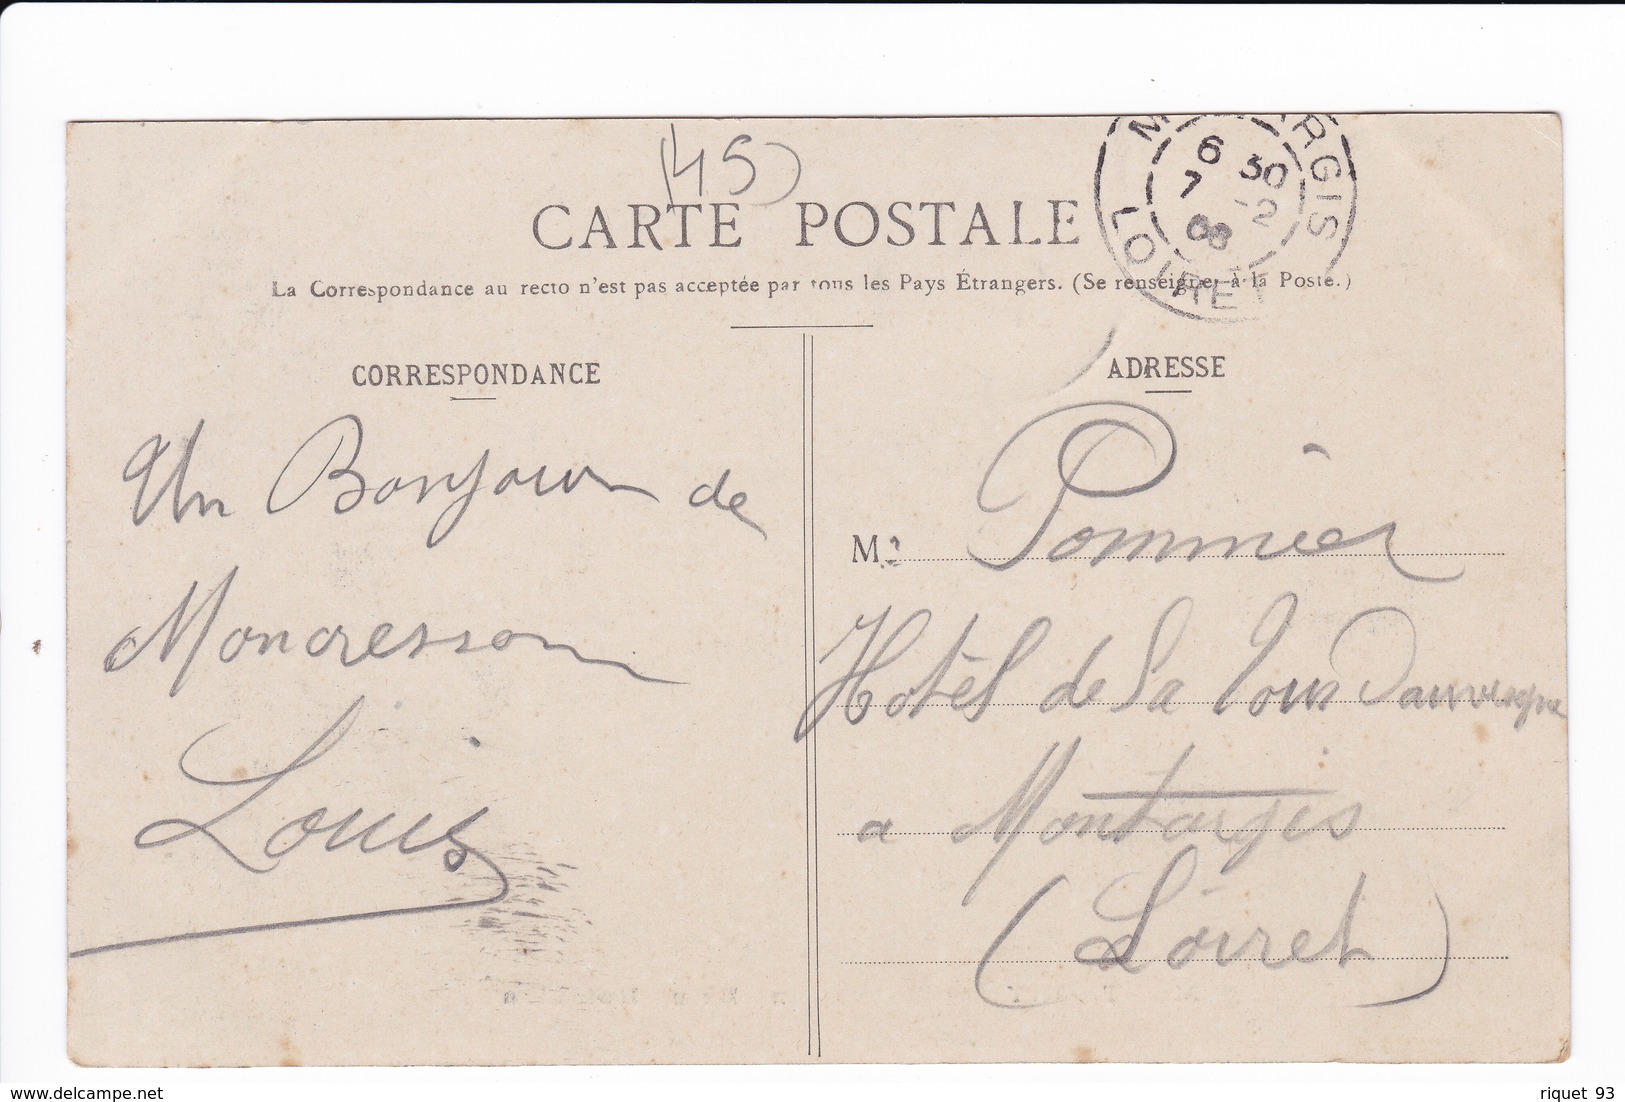 (45)
CARTE POSTALE
La Correspondance au recto n'est pas acceptée par tous les Pays Étrangers. (Se renseigner à la Poste.)
6 30
7 -2
08
LOIRET
CORRESPONDANCE
Un Bonjour de
Moncresson
Louis
ADRESSE
M. Pommier
Hotel de la Tour Dauvergne
a Montargis
(Loiret)
delcampe.net
riquet 93